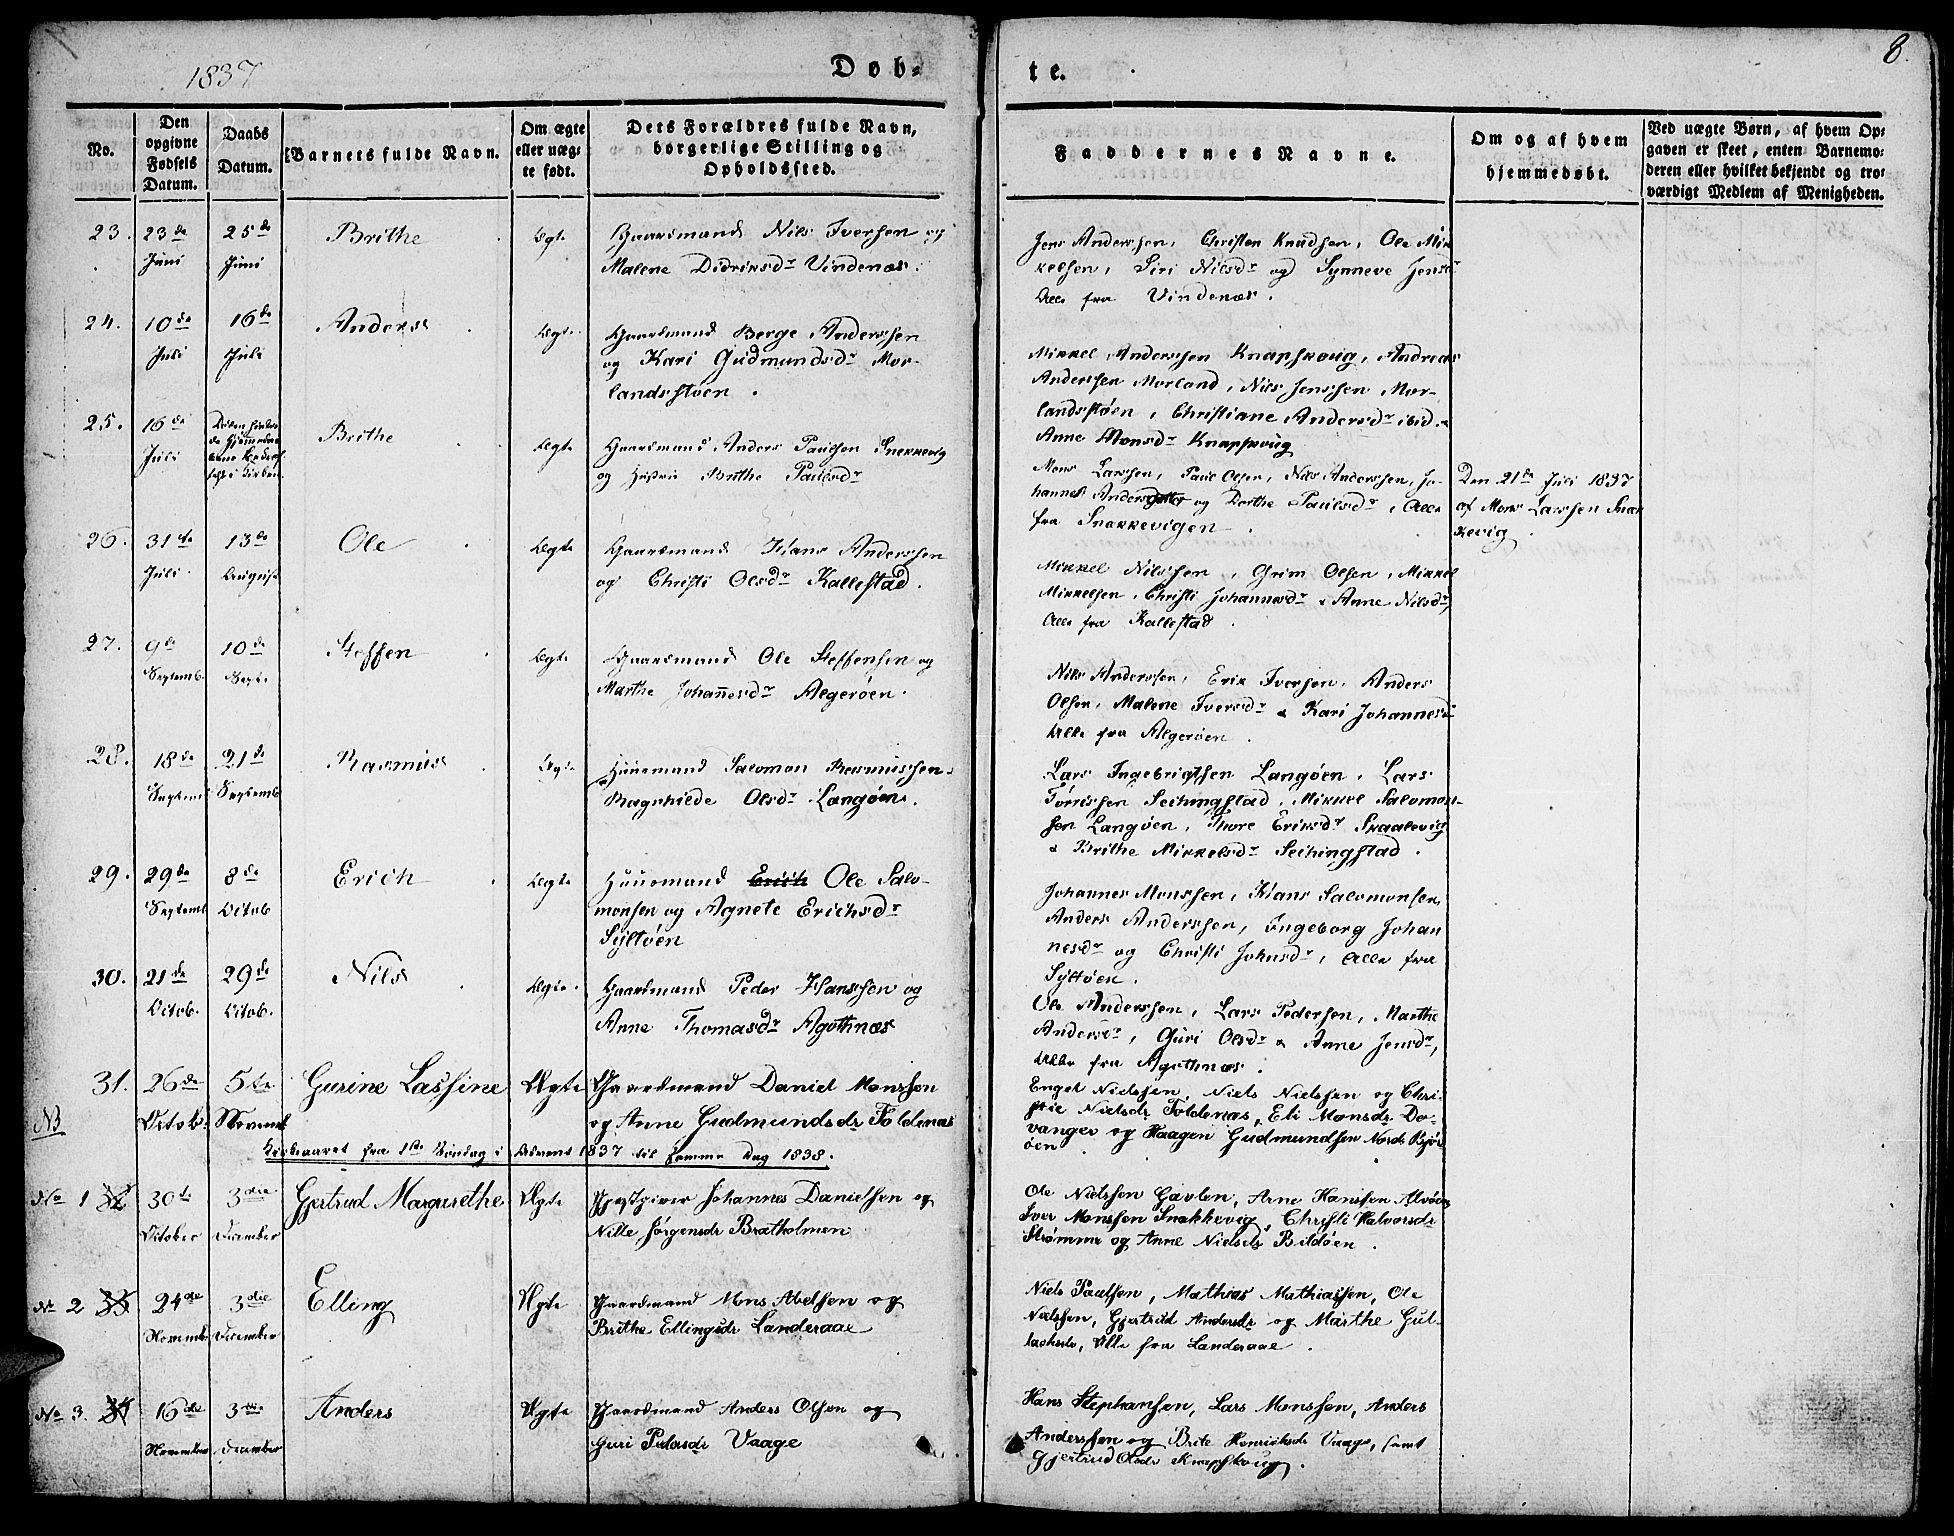 1837
Døb-
te.
8.
No.
Den
opgivne
Fødsels
Datum.
Daabs
Datum.
Barnets fulde Navn.
Om ægte
eller uæg-
te født.
Dets Forældres fulde Navn,
borgerlige Stilling og
Opholdssted.
Faddernes Navne.
Om og af hvem
hjemmedøbt.
Ved uægte Børn, af hvem Op-
gaven er skeet, enten Barnemo-
deren eller hvilket bekjendt og tro-
værdigt Medlem af Menigheden.
23.
23de
Juni
25de
Juni
Brithe
Ægte
Gaardmand Nils Iversen og
Malene Didriksdr Vindenæs.
Jens Anderssen, Christen Knudsen, Ole Mik
kelsen, Siri Nilsdr og Synneve Jensdr
Alle fra Vindenæs.
24.
10de
Juli
16de
Juli
Anders
Ægte
Gaardmand Berge Anderssen
og Kari Gudmundsdr Mor-
landsstøen.
Mikkel Anderssen Knapskoug, Andreas
Anderssen Morland, Nils Jenssen Mor-
landsstøen, Christiane Andersdr ibid.
Anne Monsdr Knapskoug
25.
16de
Juli
Brithe
Ægte
Gaardmand Anders Paulsen Snekkevig
og Hustru Brithe Paulsdr
Mons Larssen, Paul Olsen, Nils Anderssen, Jo-
hannes Anders og Dorthe Paulsdr, Alle
fra Snekkevigen.
Den 21de Juli 1837
af Mons Larssen Snæk
kevig.
26.
31te
Juli
13de
August
Ole
Ægte
Gaardmand Hans Anderssen
og Christi Olsdr Kallestad.
Mikkel Nilssen, Grim Olsen, Mikkel
Mikkelsen, Christi Johannesdr & Anne Nilsdr,
Alle fra Kallestad.
27.
9de
Septemb.
10de
Septe
Steffen
Ægte
Gaardmand Ole Steffensen og
Marthe Johannesdr Algerøen.
Nils Anderssen, Erik Iversen, Anders
Olsen, Malene Iversdr & Kari Johannesdr
Alle fra Algerøen.
28.
18de
Septemb
21de
Septemb
Rasmus
Ægte
Huusmand Salomon Rasmussen
Ragnhilde Olsdr Langøen.
Lars Ingebrigtsen Langøen, Lars
Torrissen Sechingstad, Mikkel Salomon-
sen Langøen, Thore Eriksdr Skaalevig
& Brithe Mikkelsdr Sechingstad.
29.
29de
Septemb
8de
Octob
Erich
Ægte
Huusmand Erich Ole Salo-
monsen og Agnete Erichsdr
Syltøen
Johannes Monssen, Hans Salomonsen,
Anders Anderssen, Ingeborg Johan
nesdr og Christi Johnsdr, Alle fra
Syltøen.
30.
21de
Octob.
29de
Octob.
Nils
Ægte.
Gaardmand Peder Hanssen og
Anne Thomasdr Agothnæs
Ole Anderssen, Lars Pedersen, Marthe
Andersdr, Guri Olsdr & Anne Jensdr,
Alle fra Agothnæs.
31.
26de
Octob.
5te
Novemb
Gurine Lassine
Ægte
Gaardmand Daniel Monssen
og Anne Gudmundsdr Foldenæs
Engel Nielssen, Niels Nielssen og Chri-
stie Nielsdr Foldenæs, Eli Monsdr Do-
vanger og Haagen Gudmundsen Nordr Bjor
øen
NB
Kirkeaaret fra 1ste Søndag i Advent 1837 til samme Dag 1838.
No 1 32
30te
October
3die
December
Gjertrud Margarethe
Ægte
Gjestgiver Johannes Danielsen og
Nille Jørgensdr Bratholmen
Ole Nielssen Gavlen, Arne Hanssen Alvøen
Iver Monssen Snekkevig, Christi Halvorsdr
Strømme og Anne Nielsdr Bildøen.
No 2 33
24de
November
3die
December
Elling
Ægte
Gaardmand Mons Abelsen og
Brithe Ellingsdr Landeraae
Niels Paulsen, Mathias Mathiassen, Ole
Nielssen, Gjertrud Andersdr og Marthe Gul
lachsdr, Alle fra Landeraae.
No 3. 34
16de
November
3die
December
Anders
Ægte
Gaardmand Anders Olsen og
Guri Pedersdr Vaage
Hans Stephansen, Lars Monssen, Anders
Anderssen og Brite Henriksdr Vaage, samt
Gjertrud Olsdr Knapskoug.